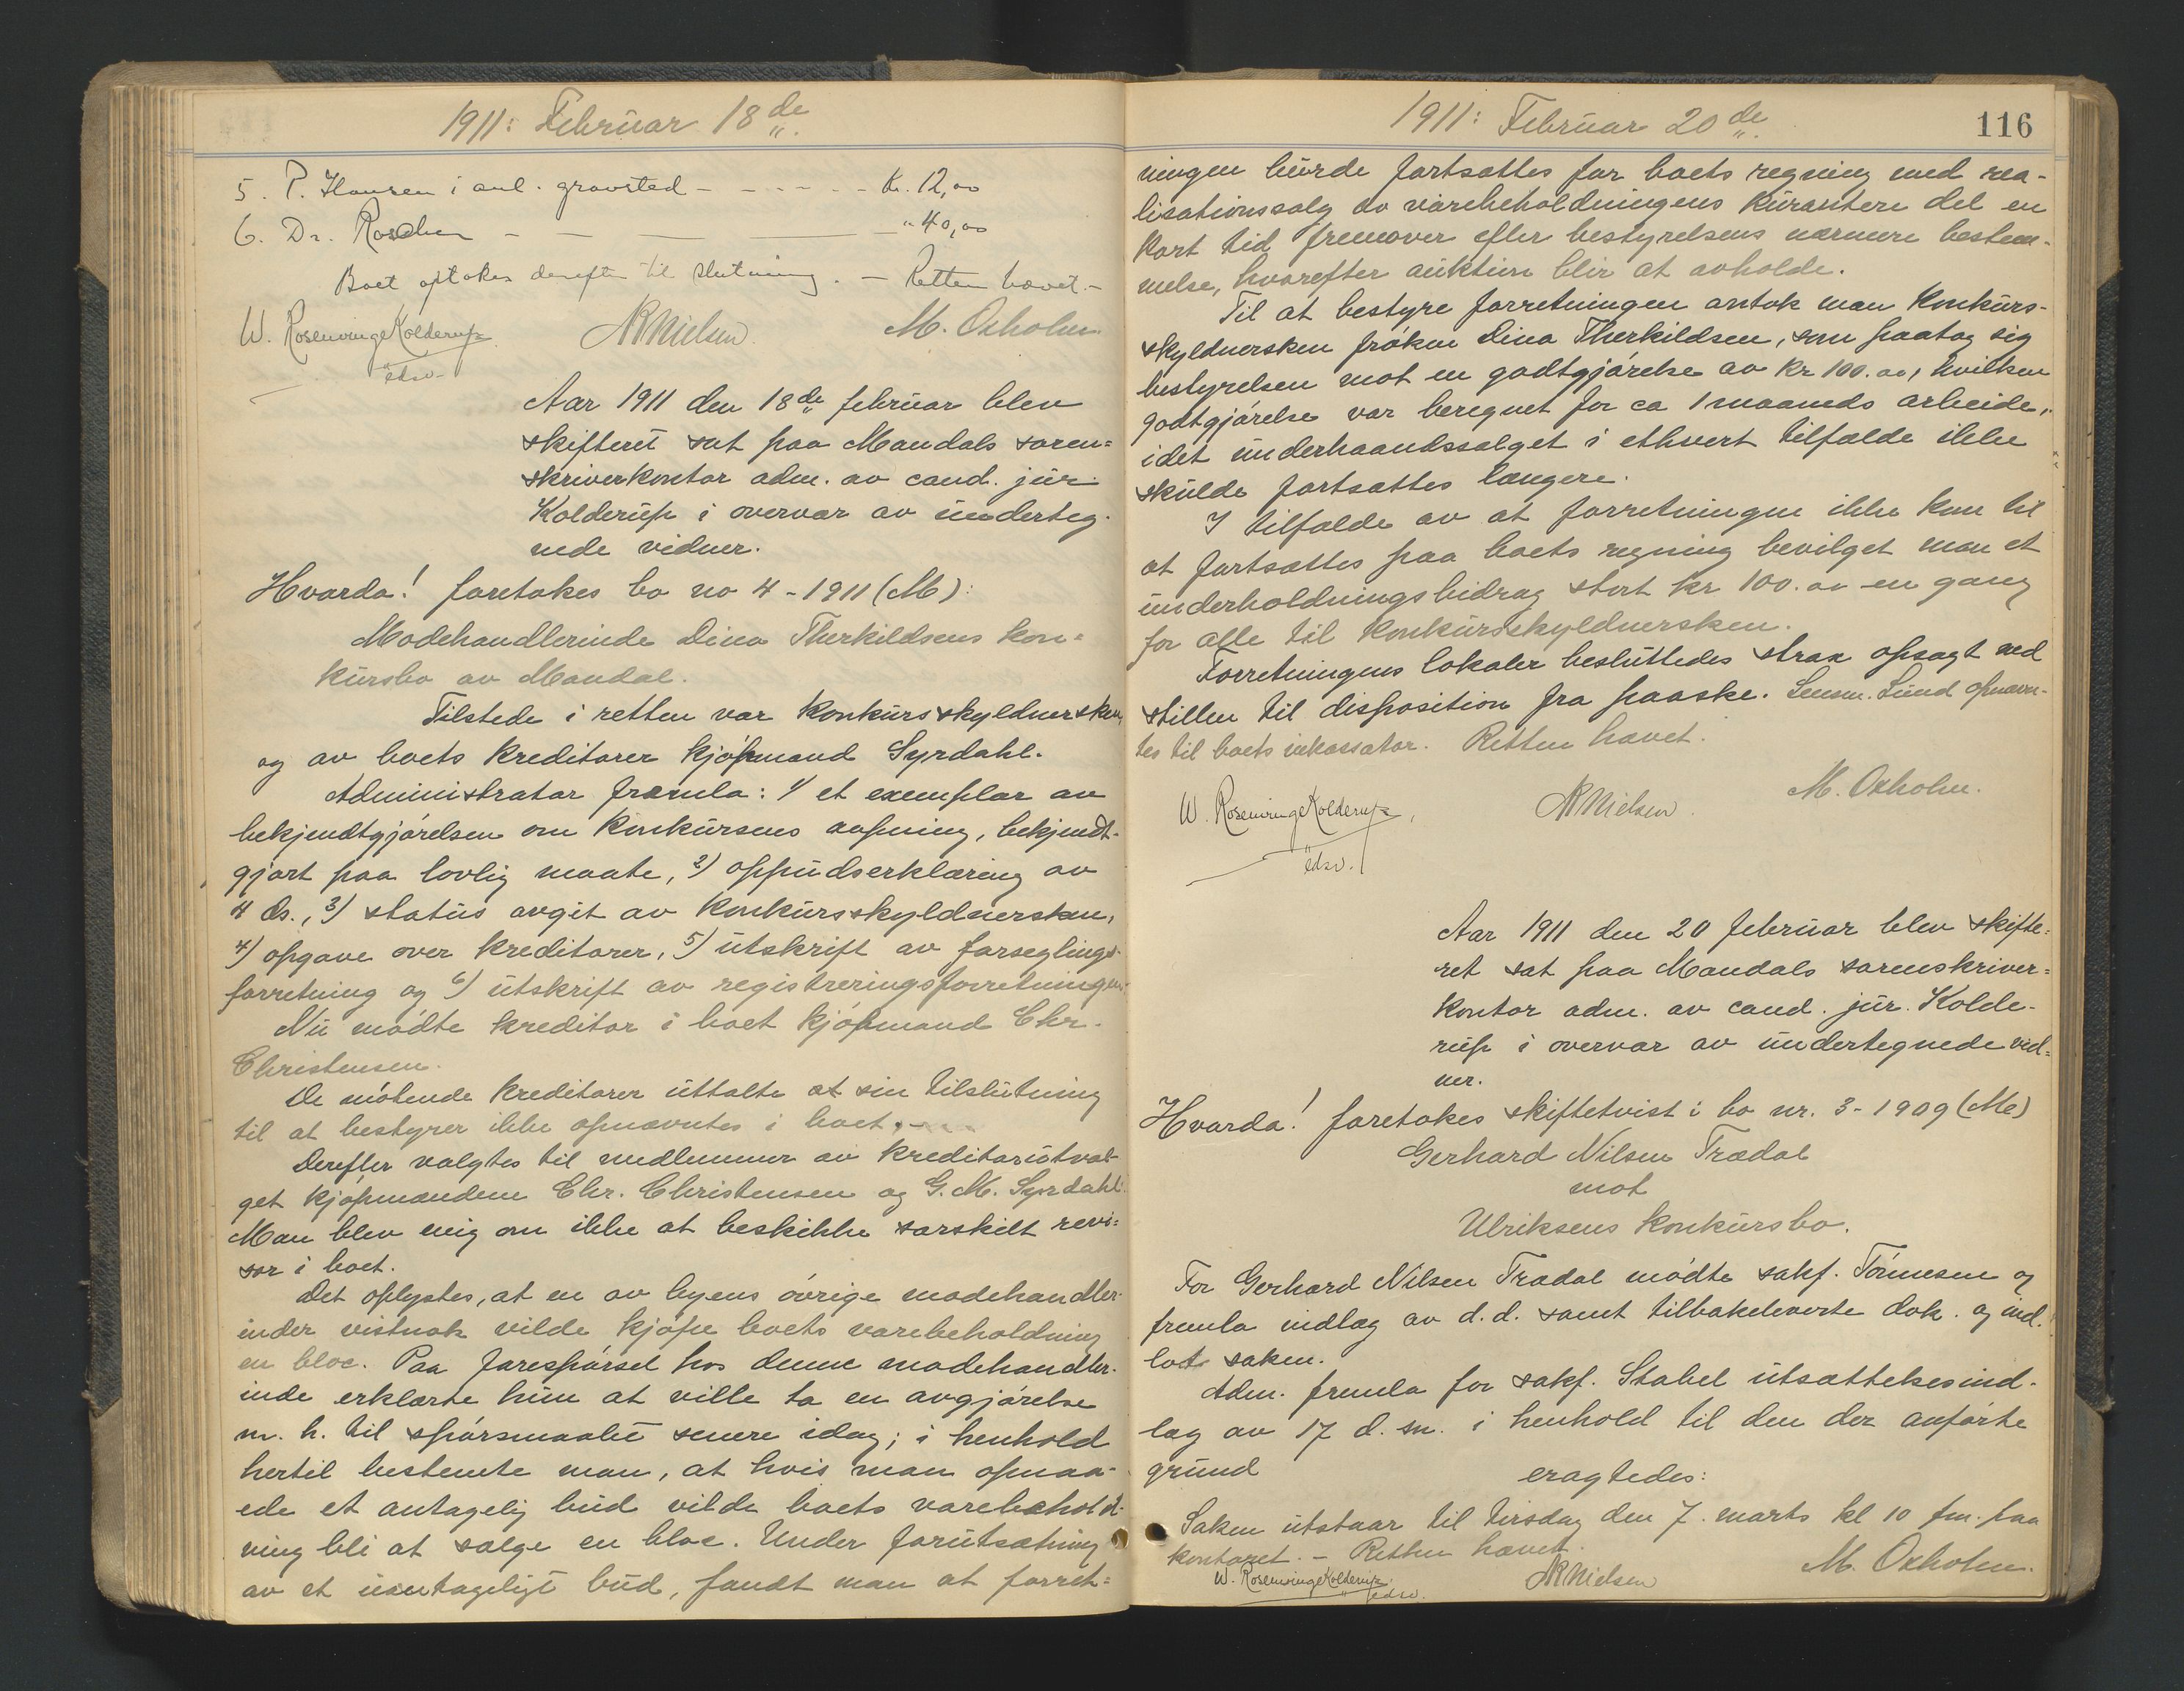 1911: Februar 18de
5. P. Hansen i anl. gravsted - - - - - Kr. 12,00
6. Dr. - - - " 40,00
Boet optokes derefter til slutning. - Retten hævet. -
W. Rosenvinge Kolderup
edsv.
NRNielsen.
M. Oxholm.
Aar 1911 den 18de februar blev
skifteret sat paa Mandals soren=
skriverkontor adm. av cand. jur.
Kolderup i overvær av underteg-
nede vidner.
Hvorda! foretokes bo no 4 - 1911 (M):
Modehandlerinde Dina Therkildsens kon=
kursbo av Mandal.
Tilstede i retten var konkursskyldnersken
og av boets kreditorer kjøpmand Syrdahl.
Administrator fremla: 1) et exemplar av
bekjendtgjørelsen om konkursens aapning, bekjendt-
gjort paa lovlig maate, 2) oppudserklæring av
4 ds., 3) status avgit av konkursskyldnersken,
4) opgave over kreditorer, 5) utskrift av forseglings-
forretning og 6) utskrift av registreringsforretningen.
Nu mødte kreditor i boet kjøpmand Chr.
Christensen.
De møtende kreditorer uttalte at sin tilslutning
til at bestyrer ikke opnævntes i boet. -
Derefter valgtes til medlemmer av kreditorutval-
get kjøpmændene Chr. Christensen og G. M. Syrdahl.
Man blev enig om ikke at beskikke særskilt revi=
sor i boet.
Det oplystes, at en av byens øvrige modehandler-
inder vistnok vilde kjøpe boets varebeholdning
en bloc. Paa forespørsel hos denne modehandler-
inde erklærte hun at ville ta en avgjørelse
m. h. til spørsmaalet senere idag; i henhold
hertil bestemte man, at hvis man opnaa-
ede et antagelig bud vilde boets varebehold-
ning bli at sælge en bloc. Under forutsætning
av et uantageligt bud, fandt man at forret=
1911: Februar 20de
116
ningen burde fortsættes for boets regning med rea-
lisationssalg av varebeholdningens kurantere del en
kort tid fremover efter bestyrelsens nærmere bestem-
melse, hvorefter auktion blir at avholde.
Til at bestyre forretningen antok man konkurs-
skyldnersken frøken Dina Therkildsen, som paatog sig
bestyrelsen mot en godtgjørelse av kr 100.00, hvilken
godtgjørelse var beregnet for ca 1 maaneds arbeide,
idet underhaandssalget i ethvert tilfælde ikke
skulde fortsættes længere.
I tilfælde av at forretningen ikke kom til
at fortsættes paa boets regning bevilget man et
underholdningsbidrag stort kr 100.00 en gang
for alle til konkursskyldnersken.
Forretningens lokaler besluttedes strax opsagt ved
stillen til disposition fra paaske. Lensm. Lund opnævn-
tes til boets inkassator. Retten hævet.
W. Rosenvinge Kolderup,
edsv.
NRNielsen.
M. Oxholm.
Aar 1911 den 20 februar blev skifte=
ret sat paa Mandals sorenskriver=
kontor adm. av cand. jur. Kolde-
rup i overvær av undertegnede vid=
ner.
Hvorda! foretokes skiftetvist i bo nr. 3 - 1909 (Me)
Gerhard Nilsen Trædal
mot
Ulriksens konkursbo.
For Gerhard Nilsen Trædal mødte sakf. Tønnesen og
fremla indlæg av d. d. samt tilbakeleverte dok. og ind-
lot saken.
Adm. fremla for sakf. Stabel utsættelsesind-
læg av 17 d. m. i henhold til den der anførte
grund eragtedes:
Saken utstaar til tirsdag den 7. marts kl 10 fm. paa
kontoret. - Retten hævet.
W. Rosenvinge Kolderup.
edsv.
NRNielsen
M. Oxholm.